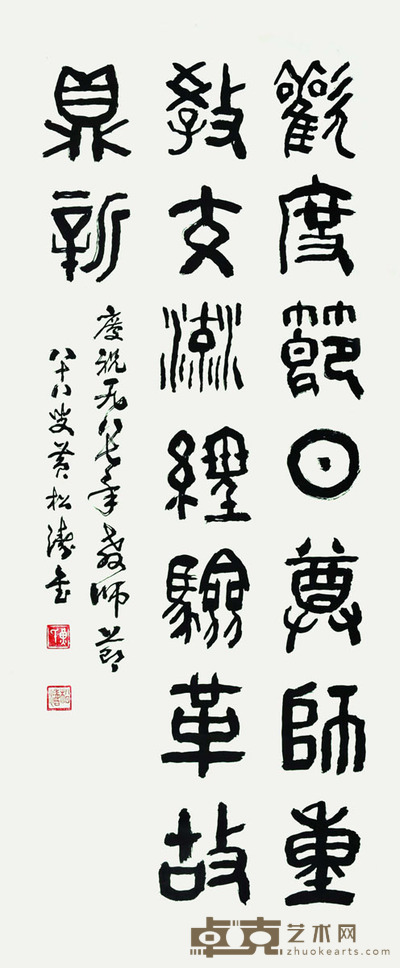 歡度節日尊師重
教交流經驗革故
鼎新
慶祝一九八七年教師節
八十八叟黃松濤
卓克艺术网
zhuokearts.com